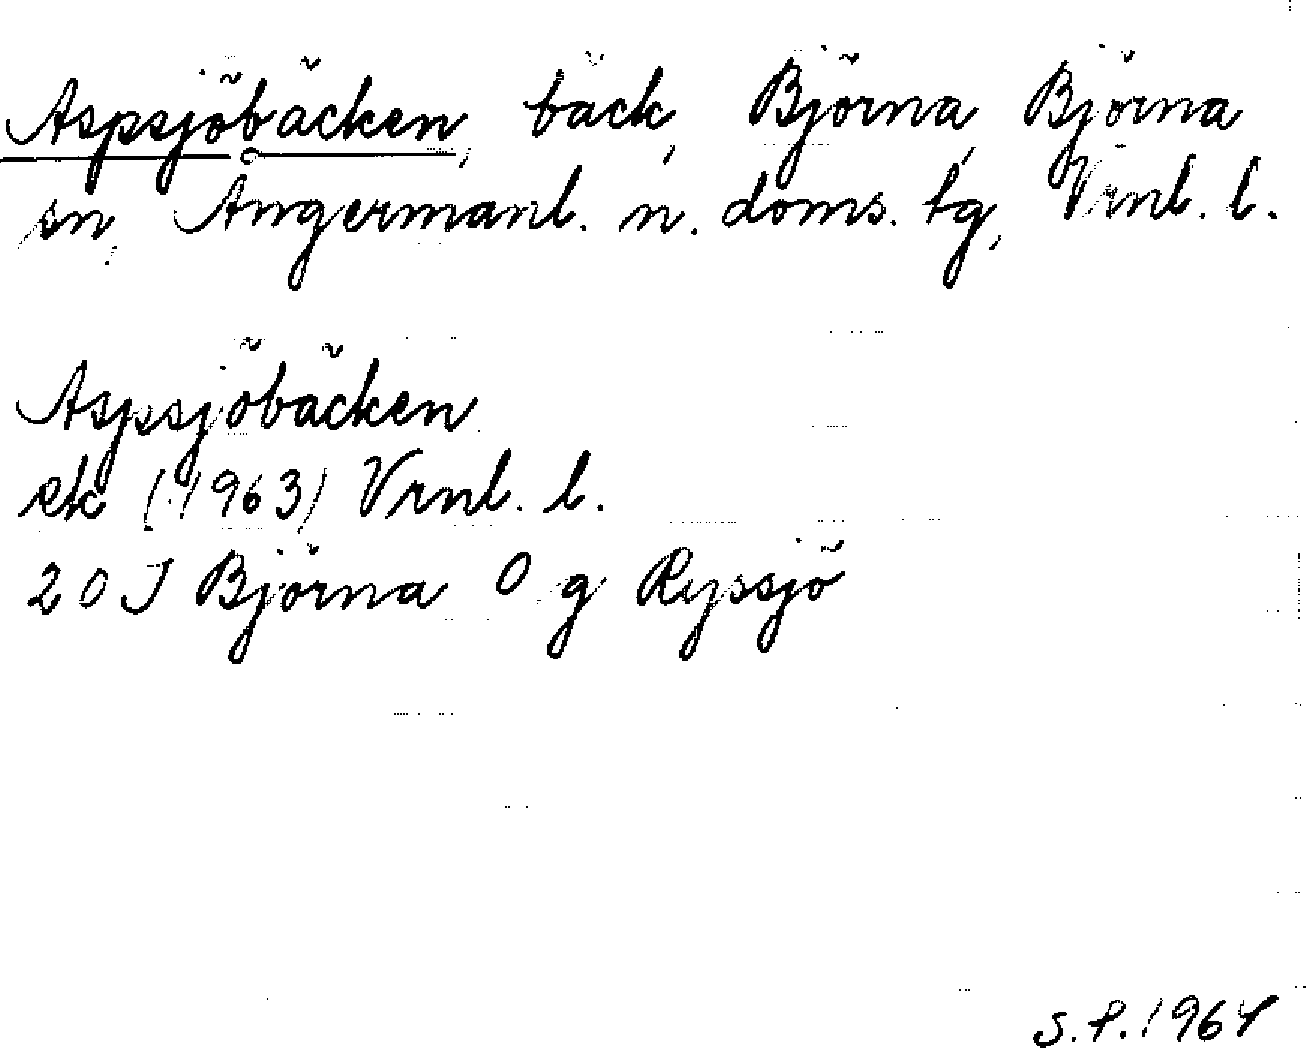 Aspsjöbäcken, bäck, Björna, Björna
sn, Ångermanl. n. doms. tg, Vrnl. l.
Aspsjöbäcken
ek (1963) Vrnl. l.
20J Björna O g Ryssjö
S.P. 1964